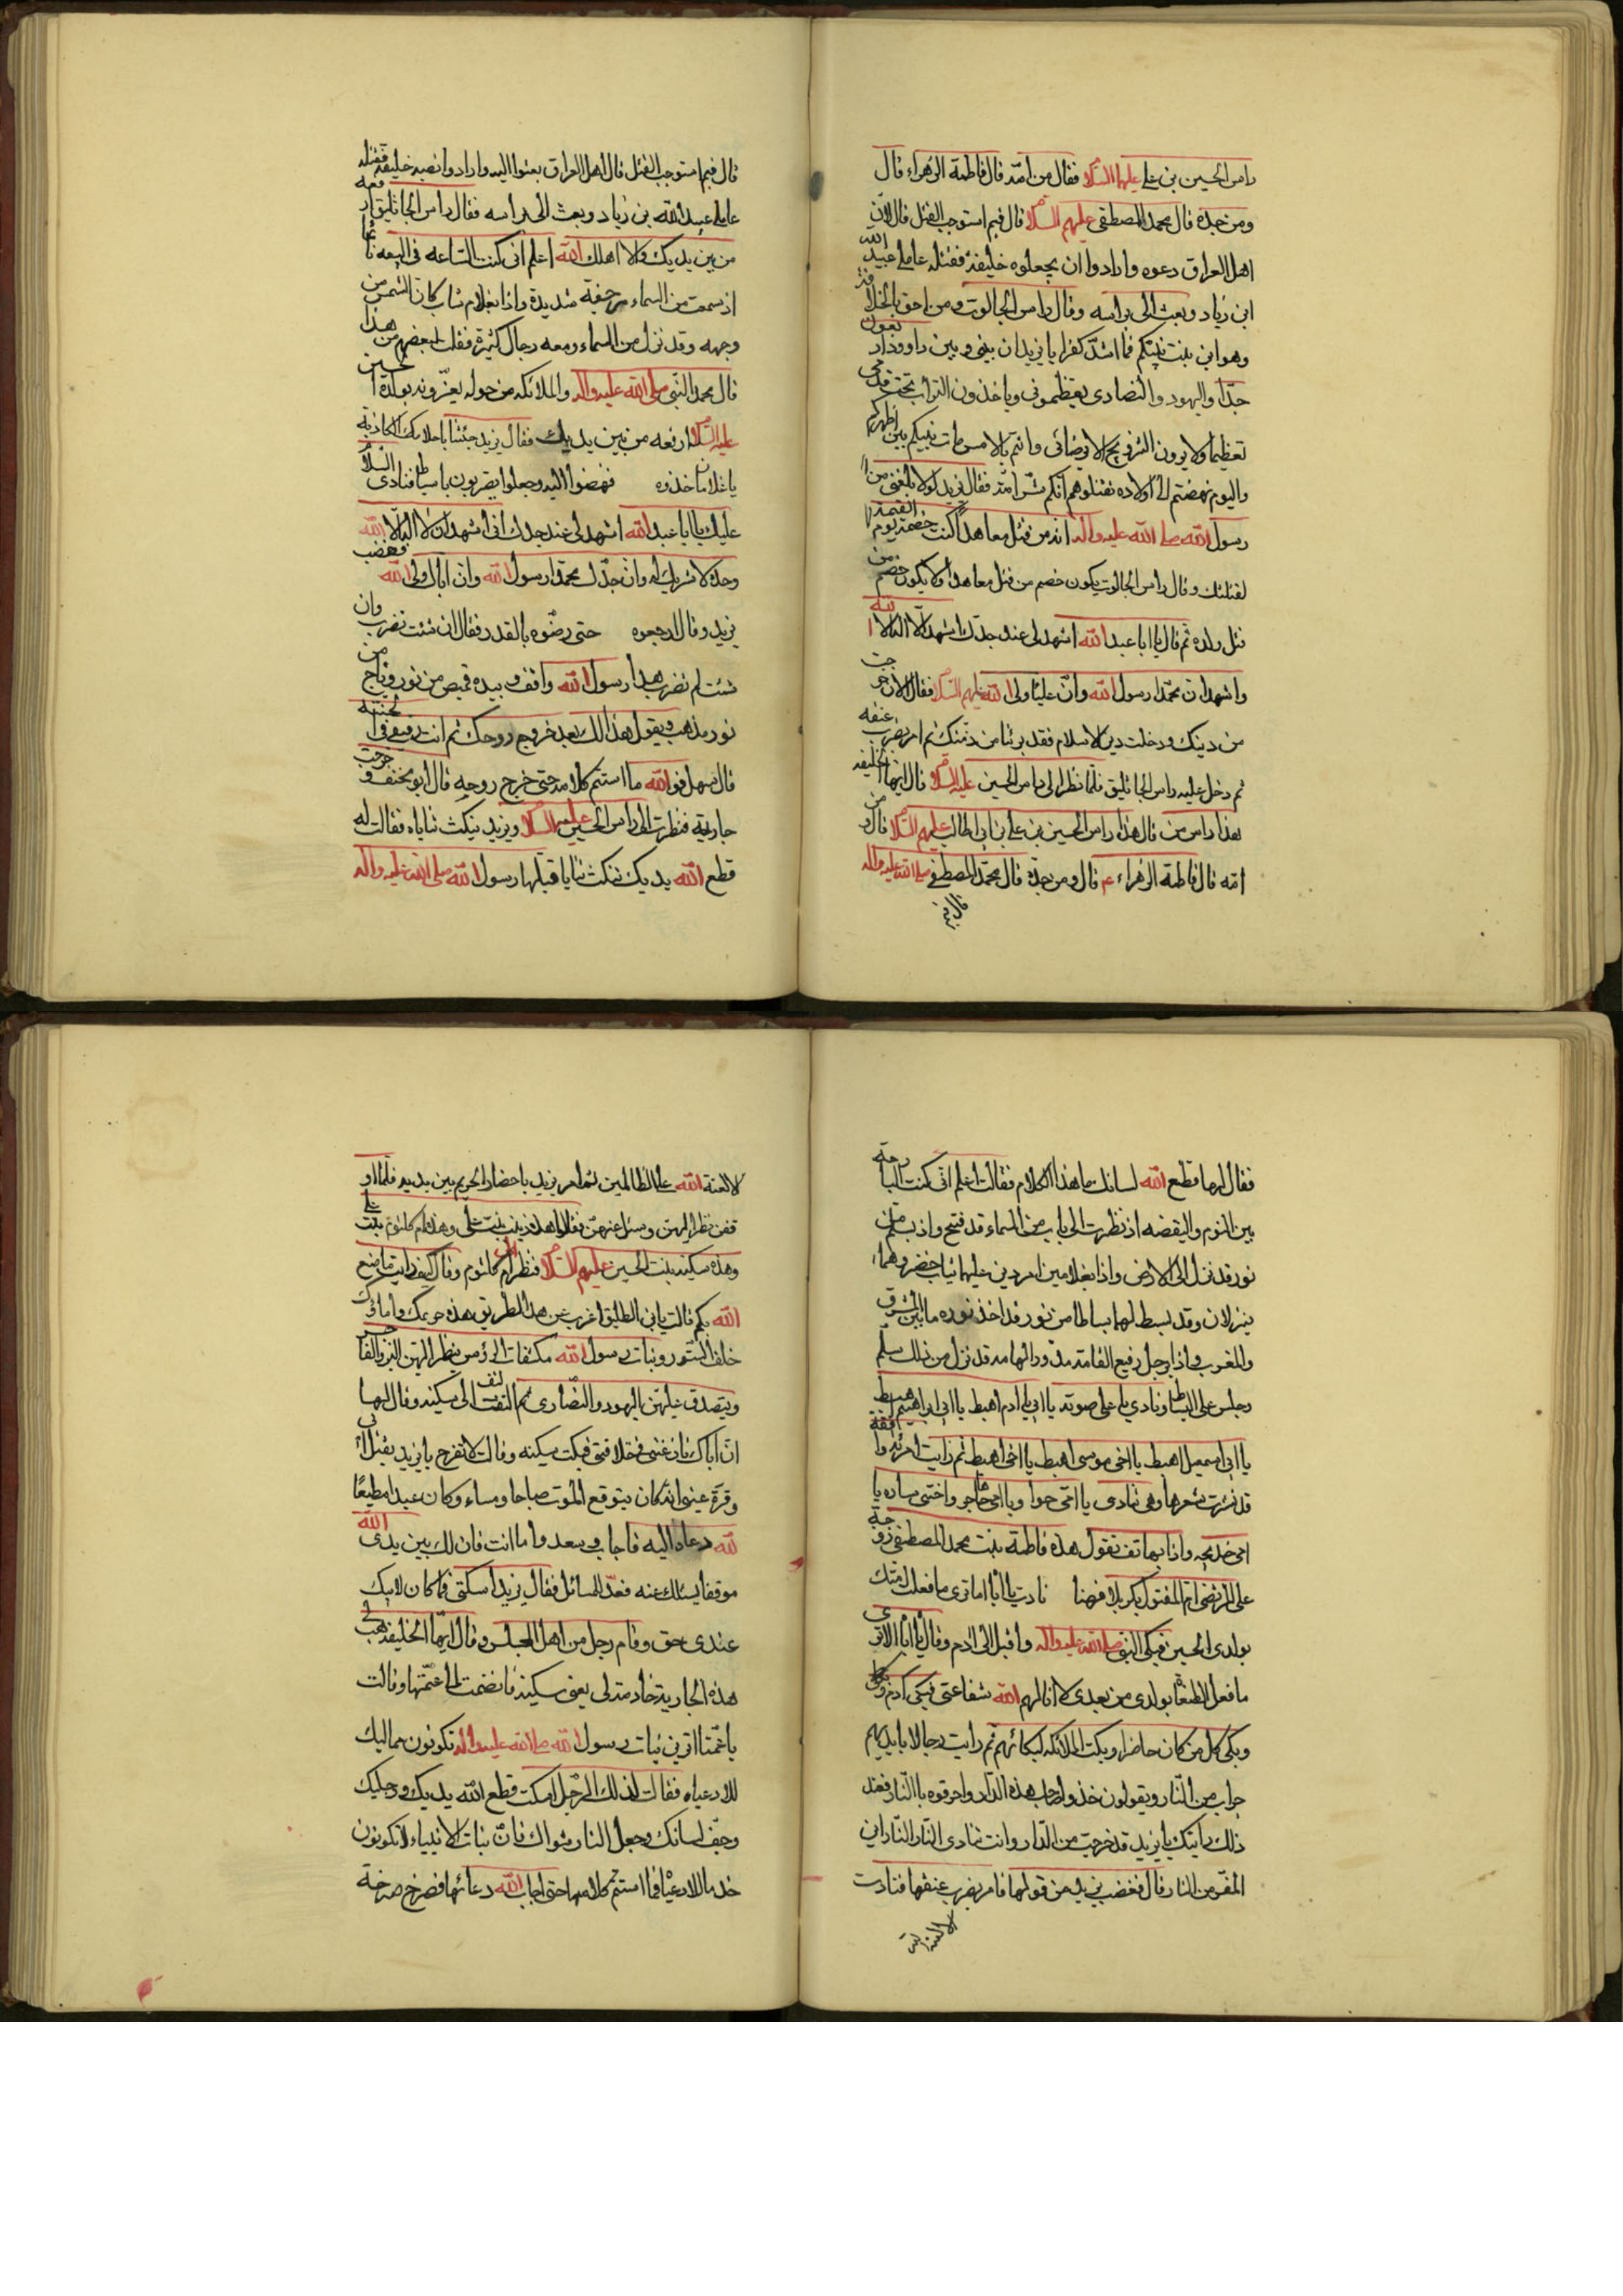 راس الحسين بن علي عليهما السلام فقال من امّه قال فاطمة الزهراء قال
ومن جدّه قال محمد المصطفى عليهم السلام قال فبم استوجب القتل قال لانّ
اهل العراق دعوه وارادوا ان يجعلوه خليفة فقتله عاملي عبيد الله
ابن زياد وبعث الىّ براسه وقال راس الجالوت ومن احق بالخلافة
وهو ابن بنت نبيّكم فما اشدّ كفركم يا يزيد ان بيني وبين داوود اربعون
جدّا واليهود والنصارى يعظموني وياخذون التراب تحت قدمي
تعظيما ولا يرون التزويج الا برضائي وانتم بالامس مات نبيكم بين اظهركم
واليوم نهضتم الى اولاده تقتلوهم انّكم شرّ امّة فقال يزيد لولا بلغني من
رسول الله صلى الله عليه واله انه من قتل معاهدا كنت خصمه يوم القيمة
لقتلتك وقال راس الجالوت يكون خصم من قتل معاهدا ولا يكون خصم من
قتل ولده ثم قال يا ابا عبد الله اشهد لي عند جدّك اشهد ان لا اله الا الله
واشهد ان محمّدا رسول الله وانّ عليّا ولي الله عليهم السلام فقال الان خرجت
من دينك ودخلت دين الاسلام فقد برئنا من ذمّتك ثم امر بضرب عنقه
ثم دخل عليه راس الجاثليق فلمّا نظر الى راس الحسين عليه السلام قال ايها الخليفه
هذا راس من قال هذا راس الحسين بن علي بن ابي طالب عليهم السلام قال ومن
امّه قال فاطمة الزهراء ع قال ومن جدّه قال محمد المصطفى صلى الله عليه واله
قال فبم
قال فبم استوجب القتل قال اهل العراق بعثوا اليه وارادوا نصبه خليفة فقتله
عاملي عبيد الله بن زياد وبعث الىّ براسه فقال راس الجاثليق ارفعه
من بين يديك والا اهلك الله اعلم انى كنت الساعه في البيعه نائما
اذ سمعت من السماء رجفة شديدة واذا بغلام شاب كان الشمس من
وجهه وقد نزل من السماء ومعه رجال كثيرة فقلت لبعضهم من هذا
قال محمد النبي صلى الله عليه واله والملائكه من حوله يعزّونه بولده الحسين
عليه السلام ارفعه من بين يديك فقال يزيد جئتنا باحلامك الكاذبه
يا غلامان خذوه فنهضوا اليه وجعلوا يضربون بالسياط فنادى السلام
عليك يا ابا عبد الله اشهد لي عند جدك انى اشهد ان لا اله الا الله
وحده لا شريك له وان جدّك محمدا رسول الله وان اباك ولي الله فغضب
يزيد وقال ارجعوه حتى رضّوه بالقدر فقال ان شئت تضرب وان
شئت لم تضرب هذا رسول الله واقف وبيده قميص من نور وتاج من
نور مذهب ويقول هذا لك بعد خروج روحك ثم انت رفيقي في الجنّه
قال سهل فوالله ما استتم كلامه حتى خرج روحه قال ابو مخنف وخرجت
جارية فنظرت الى راس الحسين عليه السلام ويزيد ينكث ثناياه فقالت له
قطع الله يديك تنكث ثنايا قبلها رسول الله صلى الله عليه واله
فقال لها قطع الله لسانك ما هذا الكلام فقالت اعلم انّي كنت البارحة
بين النوم واليقضه اذ نظرت الى باب من السماء قد فتح واذ بسلم من
نور قد نزل الى الارض واذا بغلامين امردين عليهما ثياب خضر وهما
ينزلان وقد بسط لهما بساطا من نور قد اخذ نوره ما بين المشرق
والمغرب واذا برجل رفيع القامة مدور الهامه قد نزل من ذلك سلّم
وجلس على البساط ونادى باعلى صوته يا ابي ادم اهبط يا ابي ابراهيم اهبط
يا ابي اسمعيل اهبط يا اخي موسى اهبط يا اخي اهبط ثم رايت امرئة واقفة
قد نشرت شعرها وهى تنادى يا امّي حوا ويا امي هاجر واختى ساره يا
امى خديجه واذا بهاتف تقول هذه فاطمة بنت محمد المصطفى زوجة
على المرتضى امّ المقتول بكربلا فهنا نادت يا ابا اما ترى ما فعلت امّتك
بولدى الحسين فبكى النبي صلى الله عليه واله واقبل الى ادم وقال يا ابا الا ترى
ما فعل الطغاة بولدى من بعدى لا انالهم الله شفاعتى فبكى ادم وبكا
وبكى كل من كان حاضرا وبكت الملائكه لبكائهم ثم رايت رجالا بايديهم
حراب من النّار ويقولون خذوا صاحب هذه الدّار واحرقوه باالنّار فعند
ذلك رايتك يا يزيد قد خرجت من الدّار وانت تنادى النّار النّار اين
المفرّ من النار قال فغضب يزيد من قولها فامر بضرب عنقها فنادت
الا لعنة الله
الا لعنة الله على الظالمين ثم امر يزيد باحضار الحريم بين يديه فلمّا او
قفن نظر اليهنّ وسئل عنهنّ فقالوا هذه زينب بنت علي وهذه ام كلثوم بنت علي
وهذه سكينه بنت الحسين عليهم السلام فنظر الى ام كلثوم وقال كيف رايت ما صنع
الله بكم قالت يابن الطليق اعرب عن هذا الطريق هذه حرمك واماؤك
خلف الستور وبنات رسول الله مكشفات الرؤس ينظر اليهن البر والفاجر
ويتصدق عليهن اليهود والنّصارى ثم التفت الى سكينه وقال لها
انّ اباك نازعنى في خلافتى فبكت سكينه وقالت لا تفرح يا يزيد بقتل ابى
وقرّة عينى انه كان يتوقع الموت صباحا ومساء وكان عبدا مطيعًا
لله دعاه اليه فاجاب وسعد واما انت فان لك بين يدى الله
موقفا يسئلك عنه فعدّ للمسائل فقال يزيد اسكتى فما كان لابيك
عندى حق وقام رجل من اهل المجلس وقال ايّها الخليفة هب لي
هذه الجارية خادمة لى يعنى سكينة فانضمت الى عمّتها وقالت
يا عمّتا اترين بنات رسول الله صلى الله عليه واله تكونون مماليك
للادعياء فقالت لذلك الرّجل اسكت قطع الله يديك ورجليك
وجفّ لسانك وجعل النار مثواك فانّ بنات الانبياء لا تكونون
خدما للادعياء فما استتم كلامها حتى اجاب الله دعائها فصرخ صرخة